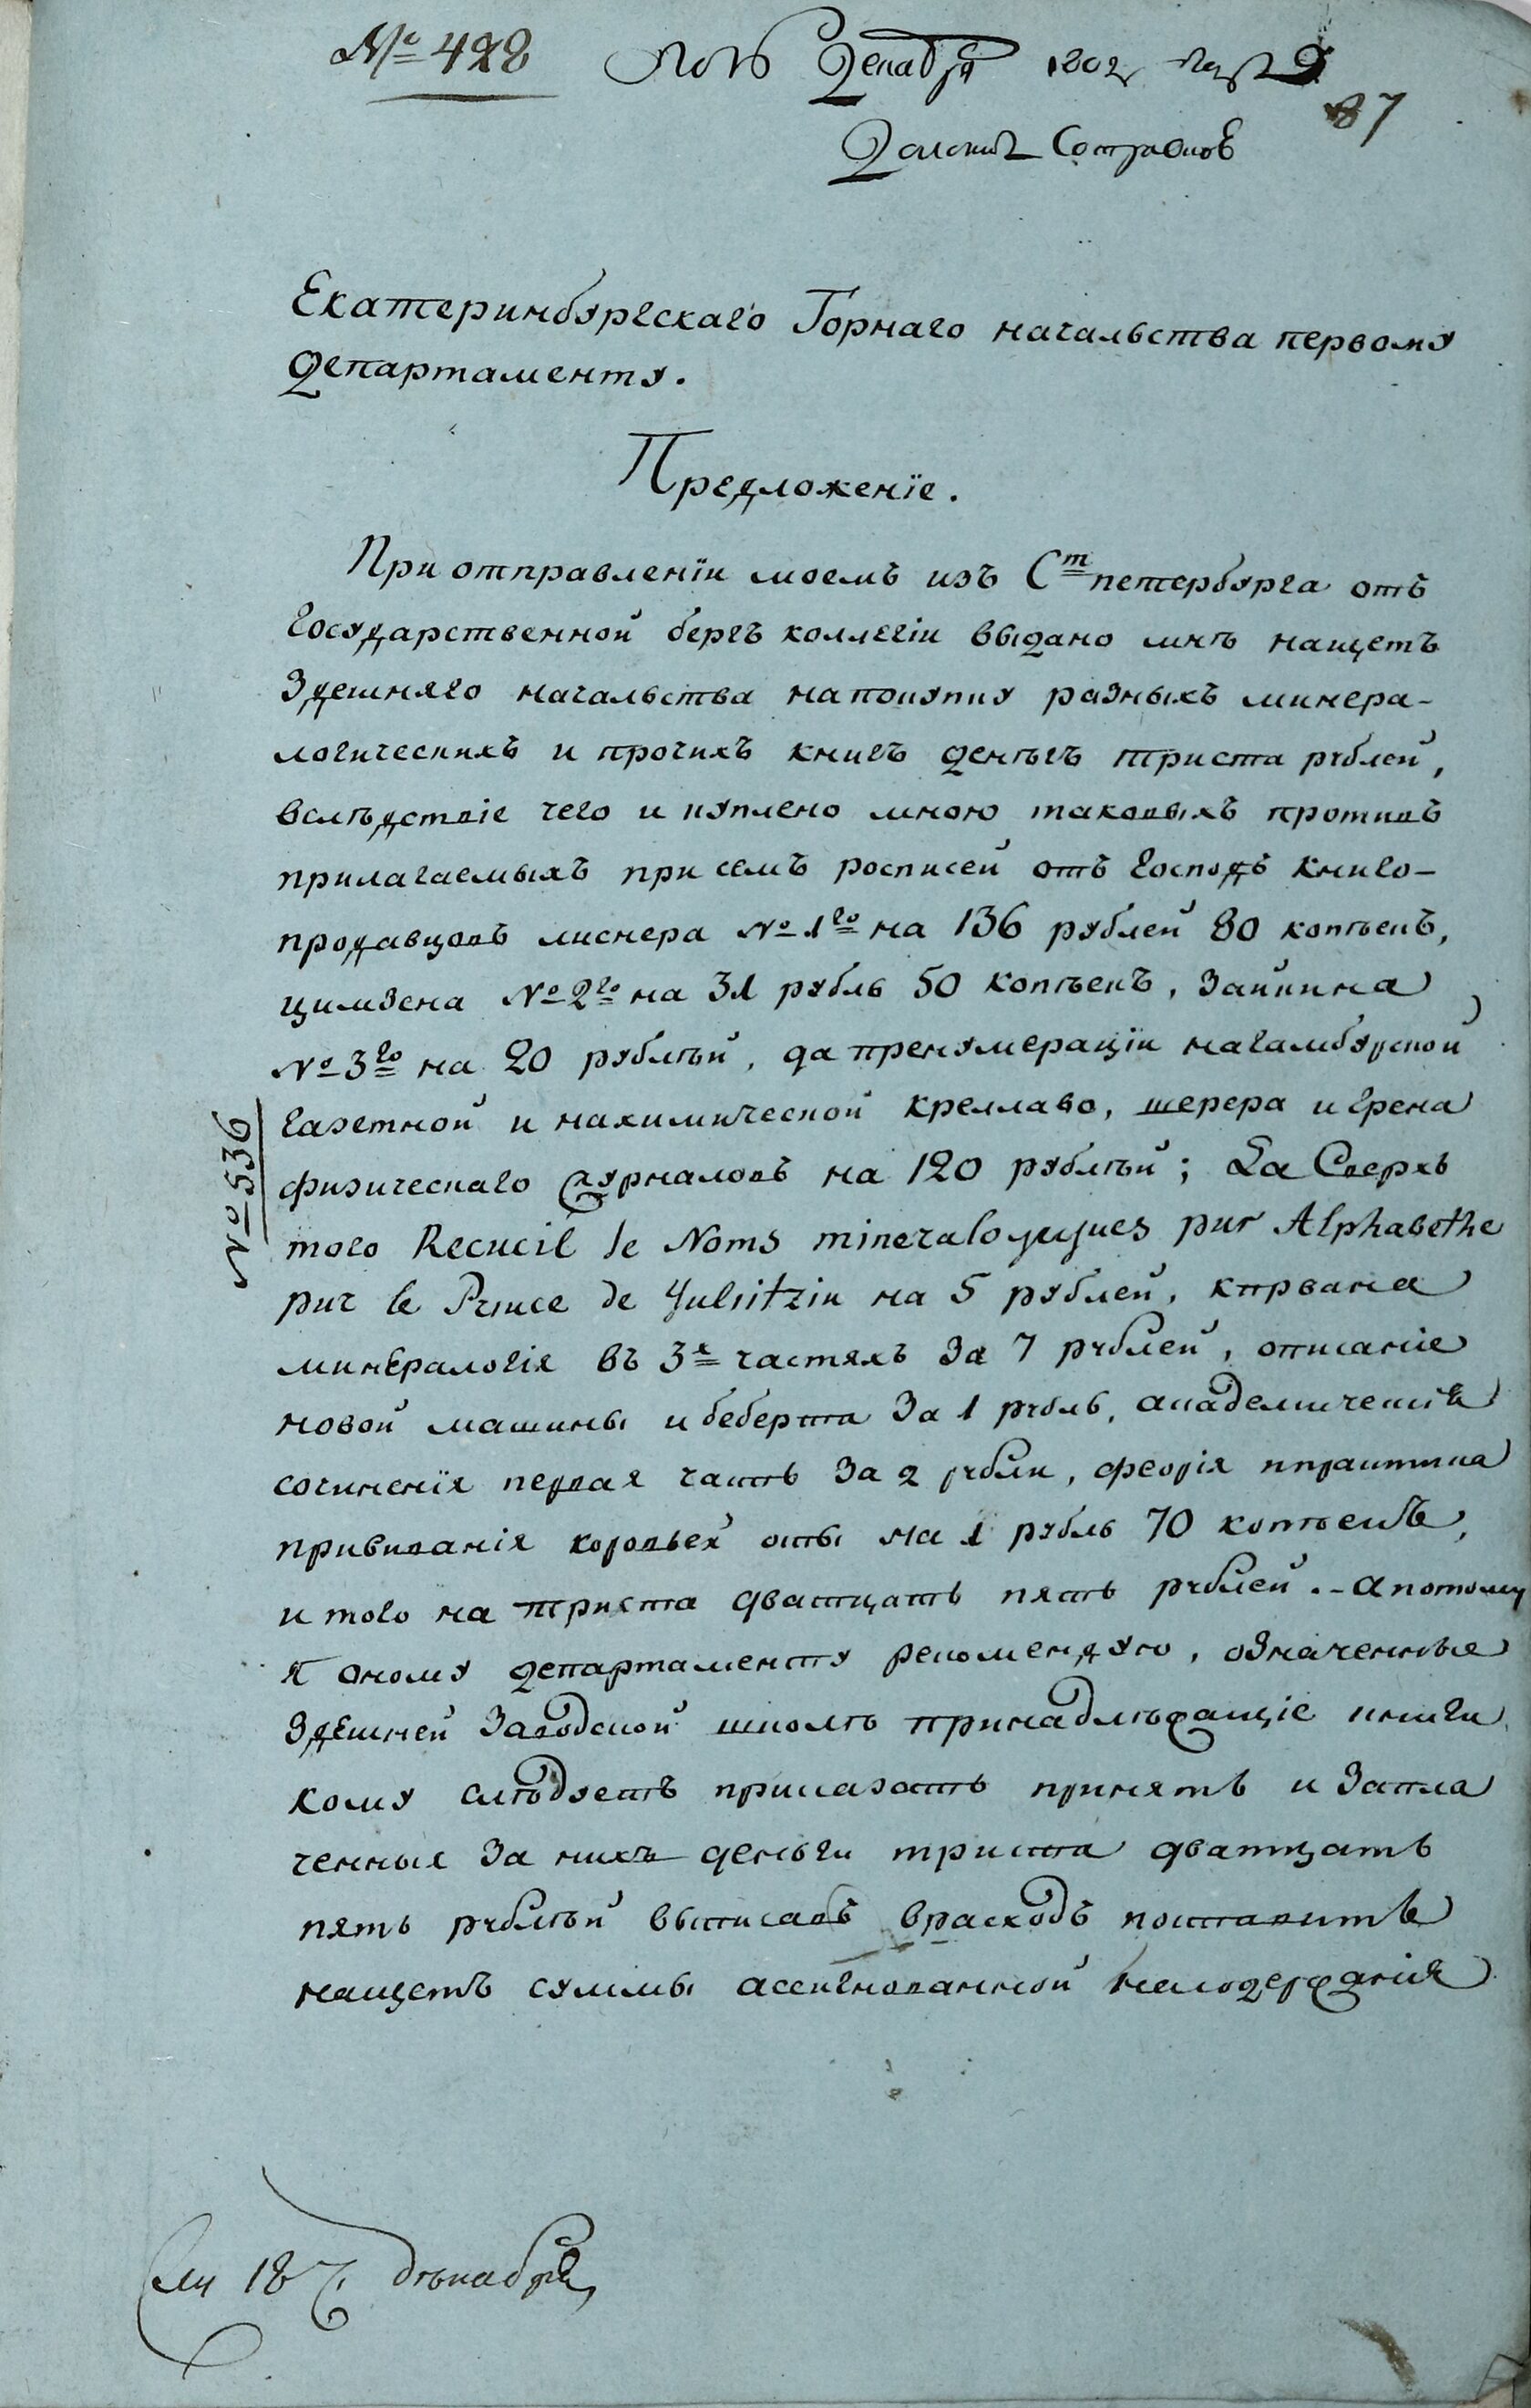 № 428 Пол. Декабря 1802 года
87
Доложить
Екатеринбургскаго Горнаго начальства первому
Департаменту.
Предложенїе.
При отправленїи моемъ изъ Ст петербурга отъ
Государственной бергъ коллегіи выдано мнѣ нащетъ
Здешняго начальства напокупку разныхъ минера-
логическихъ и прочихъ книгъ денѣгъ триста рублей,
вслѣдствіе чего и куплено мною таковыхъ противъ
прилагаемыхъ при семъ росписей отъ Господъ книго-
продавцовъ лиснера № 1го на 136 рублей 80 копѣекъ,
цимзена № 2го на 31 рубль 50 копѣекъ, Заикина
№ 3го на 20 рублѣй, да пренумераціи нагамбургской
газетной и нахимической креллаво, шерера и грена
физическаго журналовъ на 120 рублѣй; Да Сверхъ
того Recueil de Noms mineralogiques par Alphabethe
par le Prince de Gulitzin на 5 рублей, кирвана
минералогія въ 3х частяхъ За 7 рублей, описаніе
новой машины и беберта За 1 рубль, академическія
сочиненїя первая часть За 2 рубли, феорія ипрактика
прививанія коровьей оспы на 1 рубль 70 копѣекъ,
и того на триста дватцать пять рублей. - а потому
я оному департаменту рекомендую, означенные
Здешней Заводской школѣ принадлѣжащіе книги
кому слѣдуетъ приказать принять и Запла
ченныя За нихъ деньги триста дватцать
пять рублѣй выписавъ врасходъ поставить
нащетъ суммы ассигнованной насодержанія
№ 536
18 дѣкабря